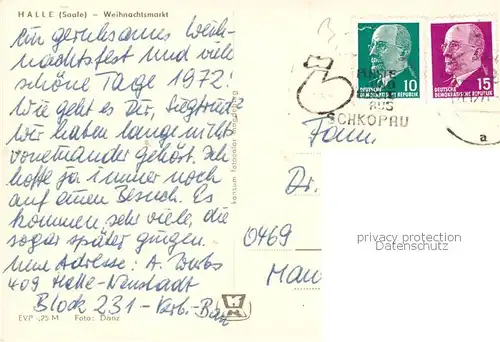 HALLE (Saale) – Weihnachtsmarkt
Ein geruhsames Weih-
nachtsfest und viele
schöne Tage 1972!
Wie geht es Dir, Siegtrud?
Wir haben lange nichts
voneinander gehört. Ich
hoffe ja immer noch
auf einen Besuch. Es
kommen sehr viele, die
sogar später gingen.
Neue Adresse: A.
409 Halle-Neustadt
Block 231 – Verb.-Bau
EVP -,25 M Foto: Danz
konsum fotocolor magdeburg
10
DEUTSCHE
DEMOKRATISCHE REPUBLIK
15
DEUTSCHE
DEMOKRATISCHE REPUBLIK
AUS
SCHKOPAU
a
Fam.
Dr.
0469
privacy protection
Datenschutz